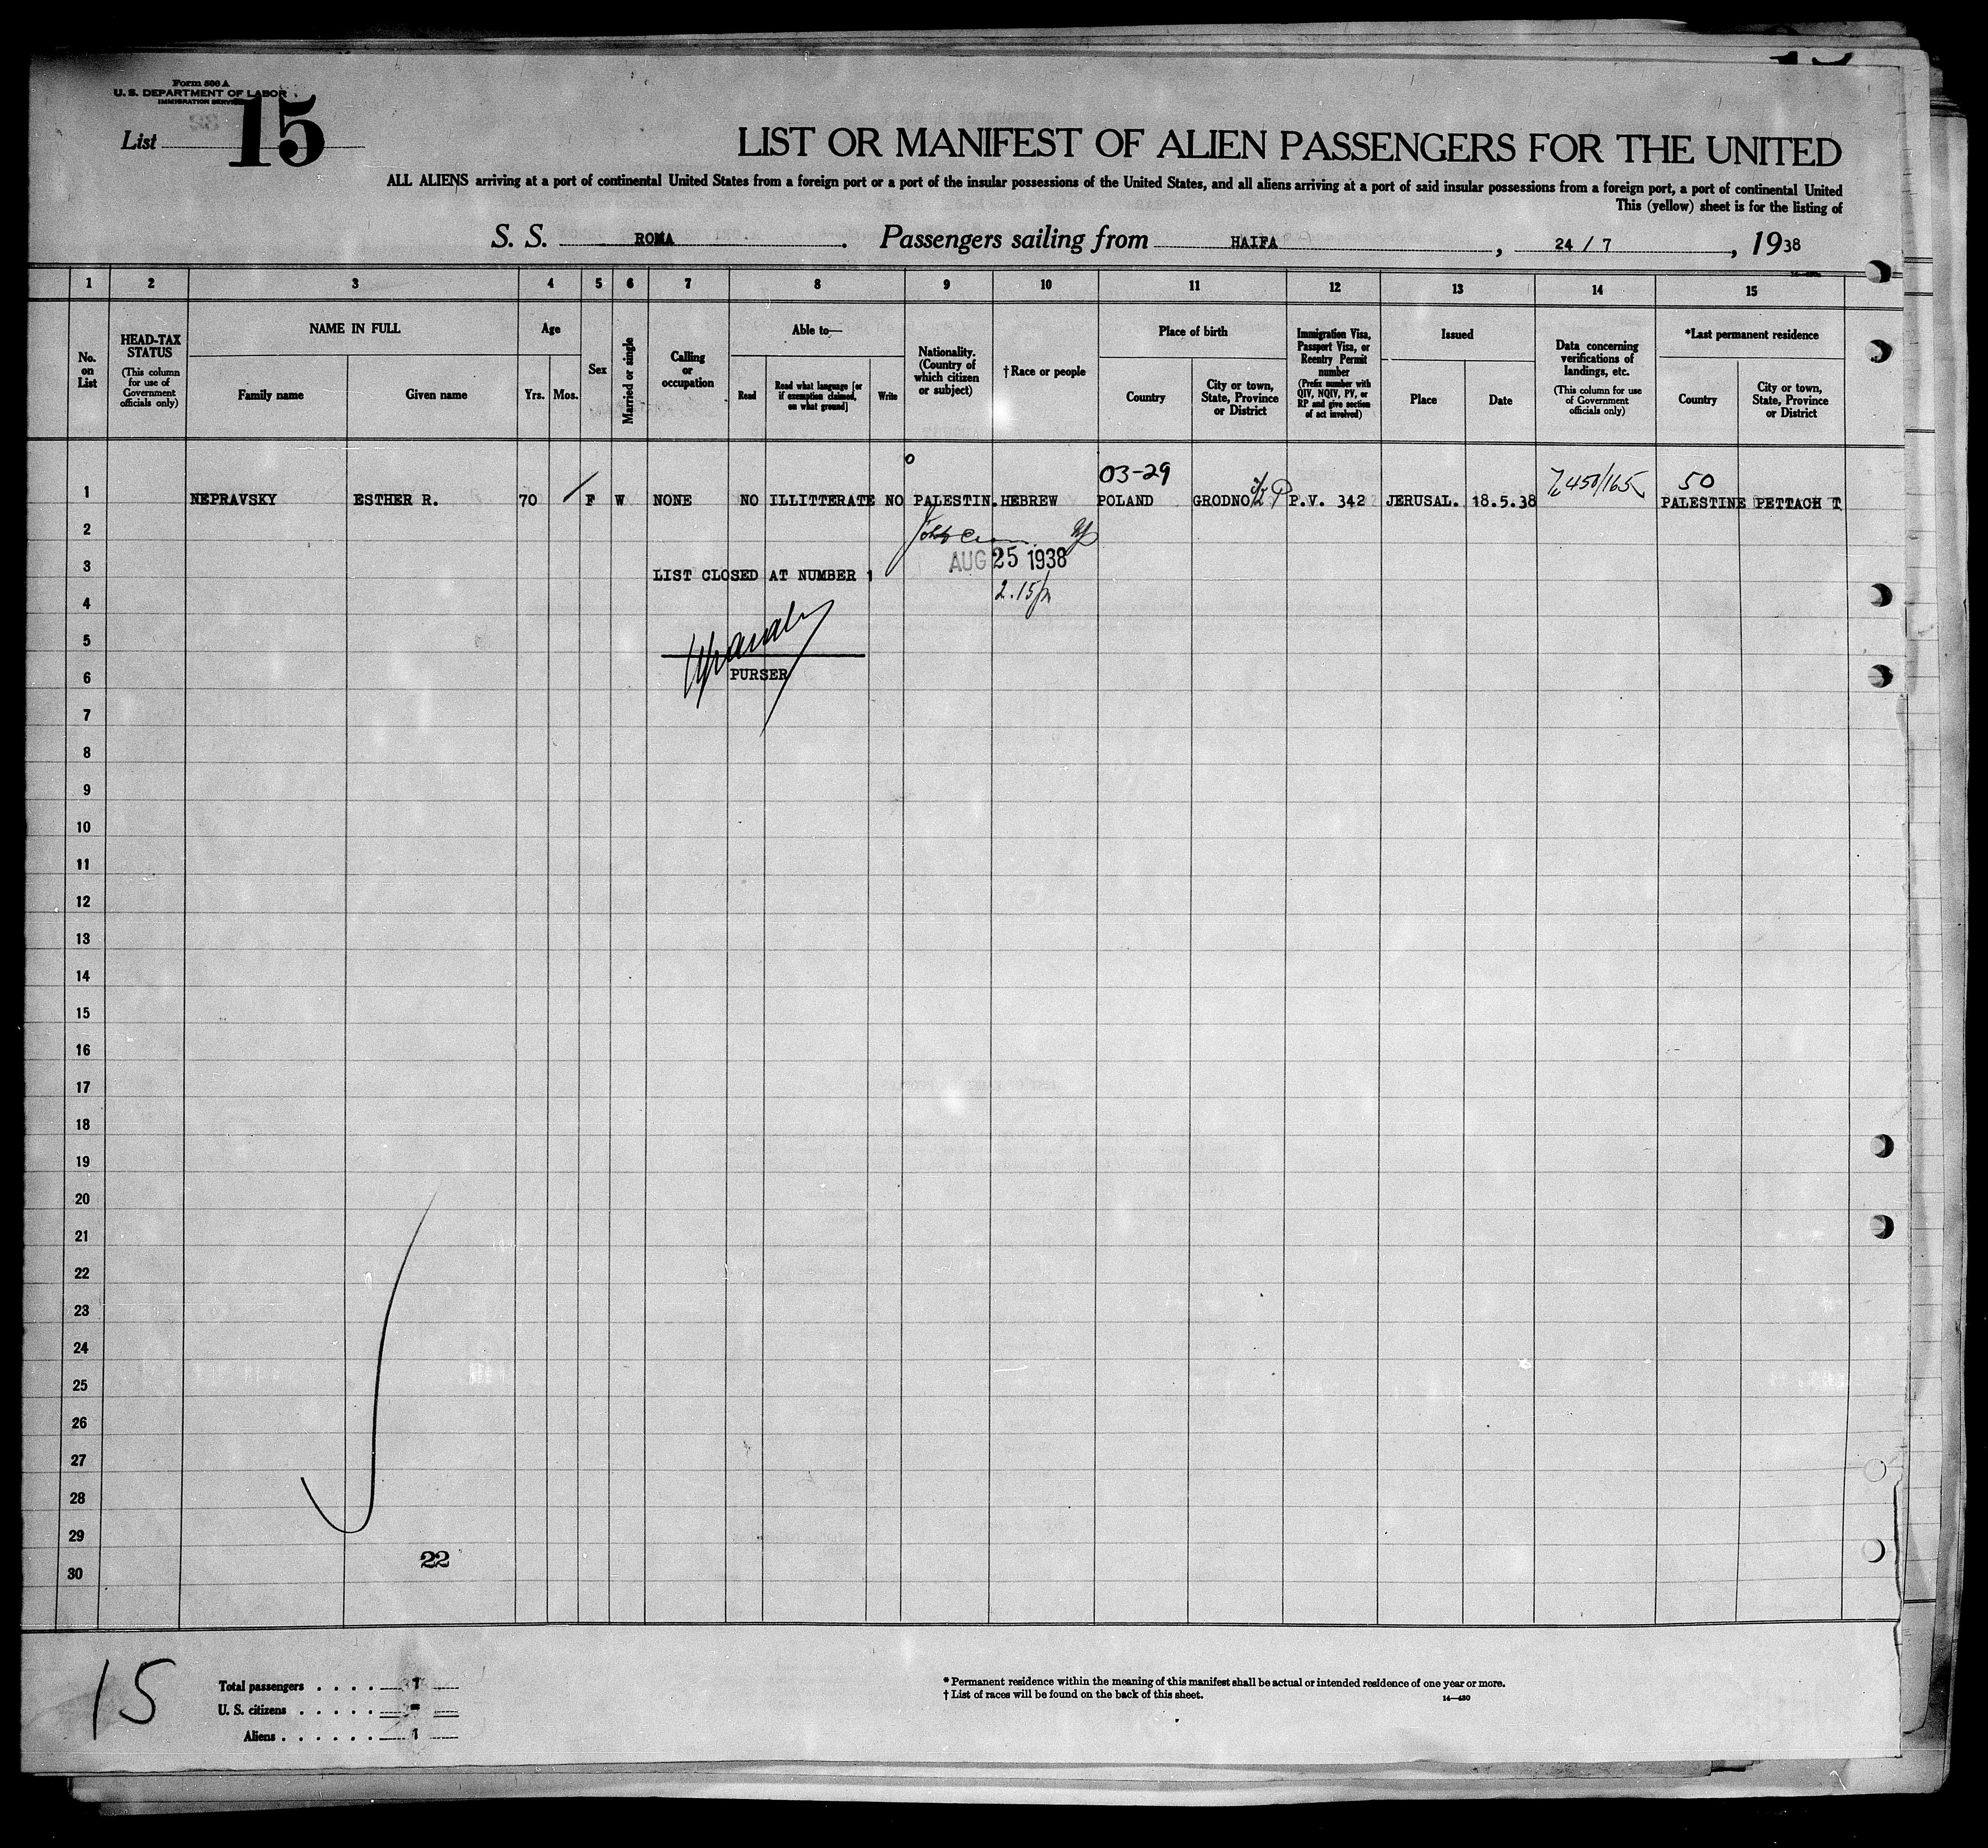 Form 500 A
U. S. DEPARTMENT OF LABOR
IMMIGRATION SERVICE
List 15
LIST OR MANIFEST OF ALIEN PASSENGERS FOR THE UNITED
ALL ALIENS arriving at a port of continental United States from a foreign port or a port of the insular possessions of the United States, and all aliens arriving at a port of said insular possessions from a foreign port, a port of continental United
This (yellow) sheet is for the listing of
S. S. ROMA. Passengers sailing from HAIFA, 24 / 7, 1938
1 2 3 4 5 6 7 8 9 10 11 12 13 14 15
No. on List
HEAD-TAX STATUS (This column for use of Government officials only)
NAME IN FULL
Family name
Given name
Age
Yrs.
Mos.
Sex
Married or single
Calling or occupation
Able to—
Read
Read what language [or if exemption claimed, on what ground]
Write
Nationality. (Country of which citizen or subject)
†Race or people
Place of birth
Country
City or town, State, Province or District
Immigration Visa, Passport Visa, or Reentry Permit number (Prefix number with QIV, NQIV, PV, or RP and give section of act involved)
Issued
Place
Date
Data concerning verifications of landings, etc. (This column for use of Government officials only)
*Last permanent residence
Country
City or town, State, Province or District
03-29
50
1 NEPRAVSKY ESTHER R. 70 F W NONE NO ILLITTERATE NO PALESTIN. HEBREW POLAND GRODNO P.V. 342 JERUSAL. 18.5.38 PALESTINE PETTACH T
2
AUG 25 1938
3
LIST CLOSED AT NUMBER 1
2.15
4
5
PURSER
6
7
8
9
10
11
12
13
14
15
16
17
18
19
20
21
22
23
24
25
26
27
28
29
22
30
15
Total passengers . . . . 1
U. S. citizens . . . . . -
Aliens . . . . . . 1
* Permanent residence within the meaning of this manifest shall be actual or intended residence of one year or more.
† List of races will be found on the back of this sheet.
14—430